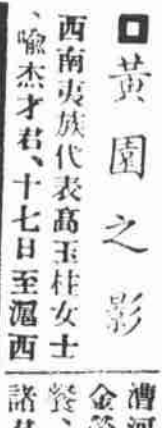 黃園之影
西南夷族代表高玉柱女士
、喻杰才君、十七日至滬西
漕河
餐、
諸君